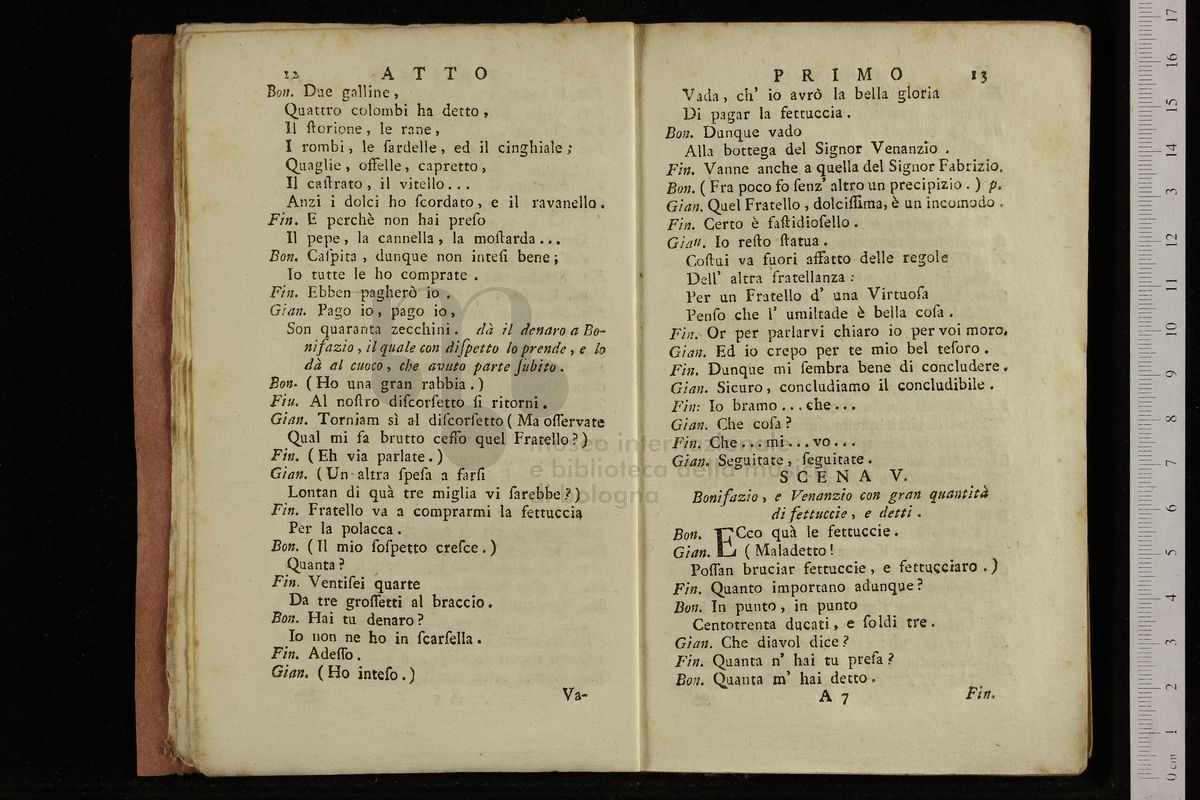 12 ATTO
Bon. Due galline,
Quattro colombi ha detto,
Il ſtorione, le rane,
I rombi, le ſardelle, ed il cinghiale;
Quaglie, offelle, capretto,
Il caſtrato, il vitello...
Anzi i dolci ho ſcordato, e il ravanello.
Fin. E perchè non hai preſo
Il pepe, la cannella, la moſtarda...
Bon. Caſpita, dunque non inteſi bene;
Io tutte le ho comprate.
Fin. Ebben pagherò io.
Gian. Pago io, pago io,
Son quaranta zecchini. dà il denaro a Bo-
nifazio, il quale con diſpetto lo prende, e lo
dà al cuoco, che avuto parte ſubito.
Bon. (Ho una gran rabbia.)
Fiu. Al noſtro diſcorſetto ſi ritorni.
Gian. Torniam sì al diſcorſetto (Ma oſſervate
Qual mi fa brutto ceſſo quel Fratello?)
Fin. (Eh via parlate.)
Gian. (Un altra ſpeſa a farſi
Lontan di quà tre miglia vi ſarebbe?)
Fin. Fratello va a comprarmi la fettuccia
Per la polacca.
Bon. (Il mio ſoſpetto creſce.)
Quanta?
Fin. Ventiſei quarte
Da tre groſſetti al braccio.
Bon. Hai tu denaro?
Io non ne ho in ſcarſella.
Fin. Adeſſo.
Gian. (Ho inteſo.)
Va-
PRIMO 13
Vada, ch' io avrò la bella gloria
Di pagar la fettuccia.
Bon. Dunque vado
Alla bottega del Signor Venanzio.
Fin. Vanne anche a quella del Signor Fabrizio.
Bon. (Fra poco fo ſenz' altro un precipizio.) p.
Gian. Quel Fratello, dolciſſima, è un incomodo.
Fin. Certo è faſtidioſello.
Gian. Io reſto ſtatua.
Coſtui va fuori affatto delle regole
Dell' altra fratellanza:
Per un Fratello d' una Virtuoſa
Penſo che l' umiltade è bella coſa.
Fin. Or per parlarvi chiaro io per voi moro.
Gian. Ed io crepo per te mio bel teſoro.
Fin. Dunque mi ſembra bene di concludere.
Gian. Sicuro, concludiamo il concludibile.
Fin: Io bramo...che...
Gian. Che coſa?
Fin. Che...mi...vo...
Gian. Seguitate, ſeguitate.
SCENA V.
Bonifazio, e Venanzio con gran quantità
di fettuccie, e detti.
Bon. ECco quà le fettuccie.
Gian. (Maladetto!
Poſſan bruciar fettuccie, e fettucciaro.)
Fin. Quanto importano adunque?
Bon. In punto, in punto
Centotrenta ducati, e ſoldi tre.
Gian. Che diavol dice?
Fin. Quanta n' hai tu preſa?
Bon. Quanta m' hai detto.
A 7 Fin.
museo internazionale
e biblioteca della musica
di bologna
0 cm 1 2 3 4 5 6 7 8 9 10 11 12 13 14 15 16 17